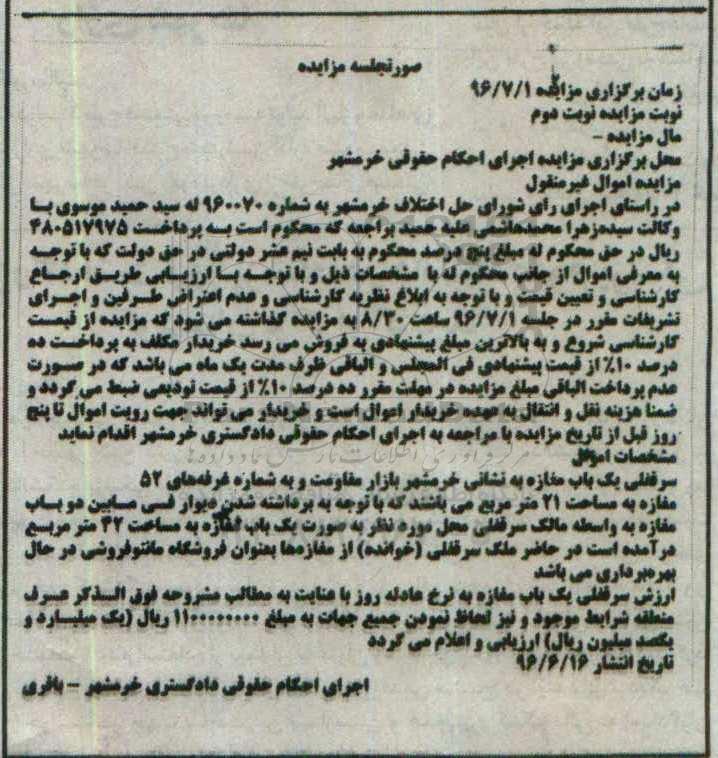 صورتجلسه مزایده
زمان برگزاری مزایده ۹۶/۷/۱
نوبت مزایده نوبت دوم
مال مزایده –
محل برگزاری مزایده اجرای احکام حقوقی خرمشهر
مزایده اموال غیرمنقول
در راستای اجرای رای شورای حل اختلاف خرمشهر به شماره ۹۶۰۰۷۰ له سید حمید موسوی بـا
وکالت سیده‌زهرا محمدهاشمی علیه حمید براجعه که محکوم است بـه پرداخـت ۴۸۰۵۱۷۹۷۵
ریال در حق محکوم له مبلغ پنج درصد محکوم به بابت نیم عشر دولتی در حق دولت که با توجه
به معرفی اموال از جانب محکوم له با مشخصات ذیل و با توجـه بـا ارزیـابی طریـق ارجـاع
کارشناسی و تعیین قیمت و با توجه به ابلاغ نظریه کارشناسی و عدم اعتراض طـرفین و اجـرای
تشریفات مقرر در جلسه ۹۶/۷/۱ ساعت ۸/۳۰ به مزایده گذاشته می شود که مزایده از قیمـت
کارشناسی شروع و به بالاترین مبلغ پیشنهادی به فروش می رسد خریدار مکلف به پرداخـت ده
درصد ۱۰٪ از قیمت پیشنهادی فی المجلس و الباقی ظرف مدت یک ماه می باشد که در صـورت
عدم پرداخت الباقی مبلغ مزایده در مهلت مقرر ده درصد ۱۰٪ از قیمت تودیعی ضبط می گردد و
ضمنا هزینه نقل و انتقال به عهده خریدار اموال است و خریدار می تواند جهت رویت اموال تا پنج
روز قبل از تاریخ مزایده با مراجعه به اجرای احکام حقوقی دادگستری خرمشهر اقدام نماید
مشخصات اموال
سرقفلی یک باب مغازه به نشانی خرمشهر بازار مقاومت و به شماره غرفه‌های ۵۲
مغازه به مساحت ۲۱ متر مربع می باشند که با توجه به برداشته شدن دیوار فـی مـابین دو بـاب
مغازه به واسطه مالک سرقفلی محل مورد نظر به صورت یک باب مغازه به مساحت ۴۲ متر مربـع
درآمده است در حاضر ملک سرقفلی (خوانده) از مغازه‌ها بعنوان فروشگاه مانتوفروشی در حال
بهره‌برداری می باشد
ارزش سرقفلی یک باب مغازه به نرخ عادله روز با عنایت به مطالب مشروحه فوق الـذکر عـرف
منطقه شرایط موجود و نیز لحاظ نمودن جمیع جهات به مبلغ ۱۱۰۰۰۰۰۰۰۰ ریال (یک میلیـارد و
یکصد میلیون ریال) ارزیابی و اعلام می گردد
تاریخ انتشار ۹۶/۶/۱۶
اجرای احکام حقوقی دادگستری خرمشهر – باقری